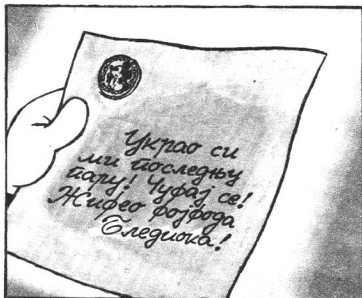 Украо си
ми последњу
пару! Чуфај се!
Жифео фојфода
Бледиока!